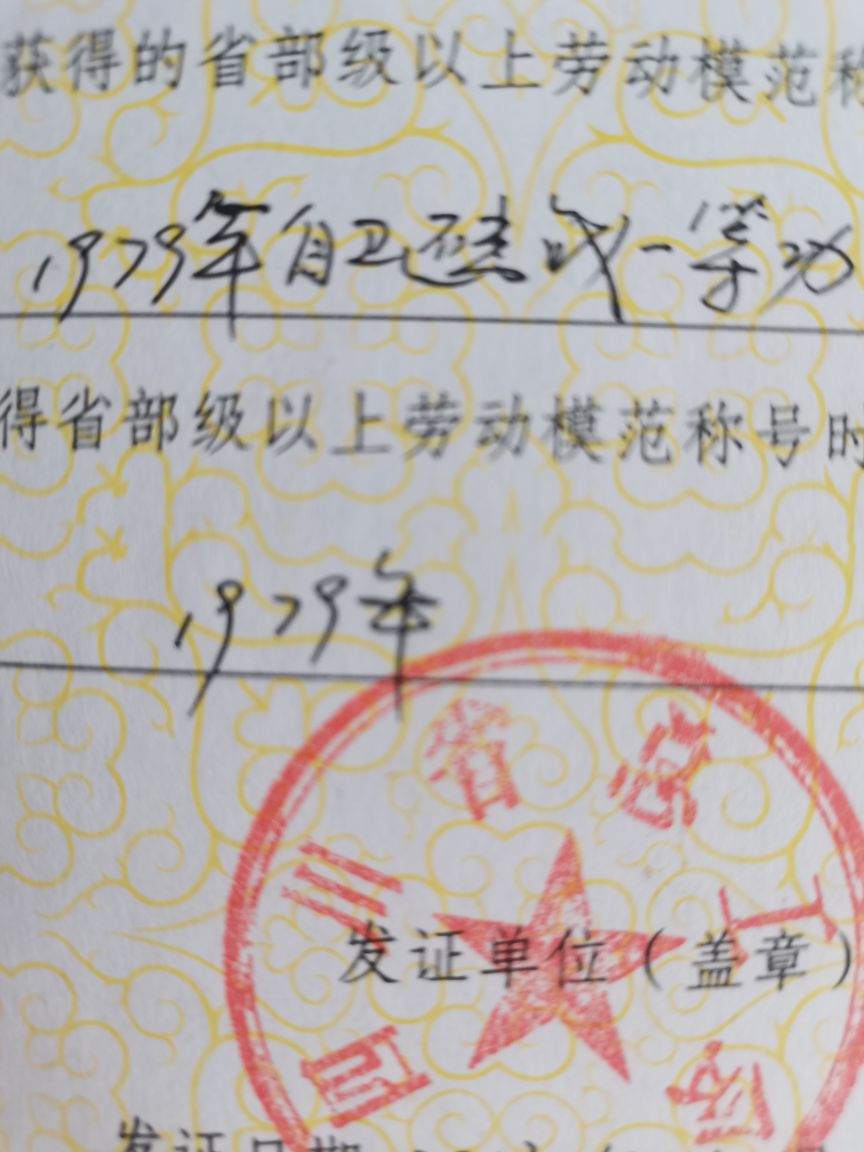 获得的省部级以上劳动模范称
1979年自卫还击战一等功
得省部级以上劳动模范称号时
1979年
四川省总工会
发证单位（盖章）
发证日期